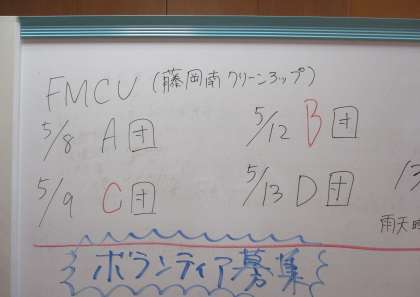 FMCU (藤岡南クリーンアップ)
5/8 A団 5/12 B団
5/9 C団 5/13 D団 13
雨天
ボランティア募集